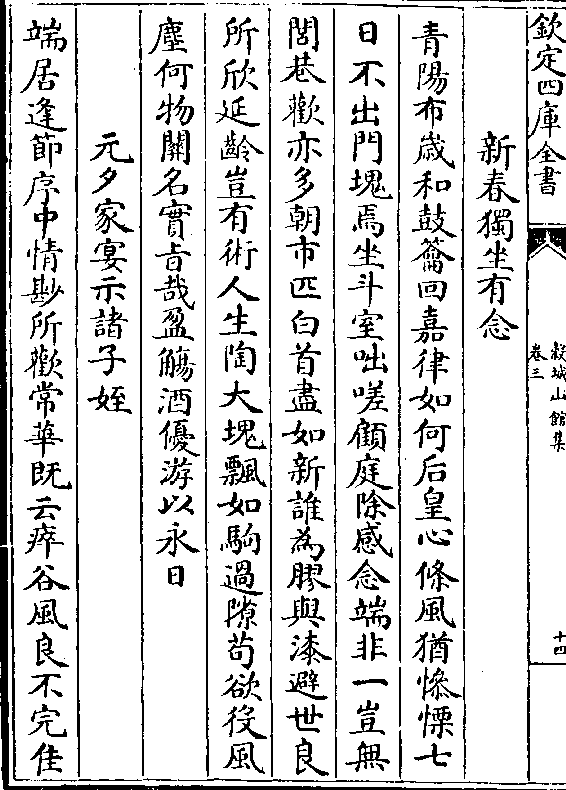 欽定四庫全書
穀城山館集
卷三
十四
新春獨坐有念
青陽布歳和鼓籥回嘉律如何后皇心條風猶慘慄七
日不出門塊焉坐斗室咄嗟顧庭除感念端非一豈無
閭巷歡亦多朝市匹白首盡如新誰為膠與漆避世良
所欣延齡豈有術人生陶大塊飄如駒過隙苟欲役風
塵何物關名實旨哉盈觴酒優游以永日
元夕家宴示諸子姪
端居逢節序中情尠所歡常華既云瘁谷風良不完佳